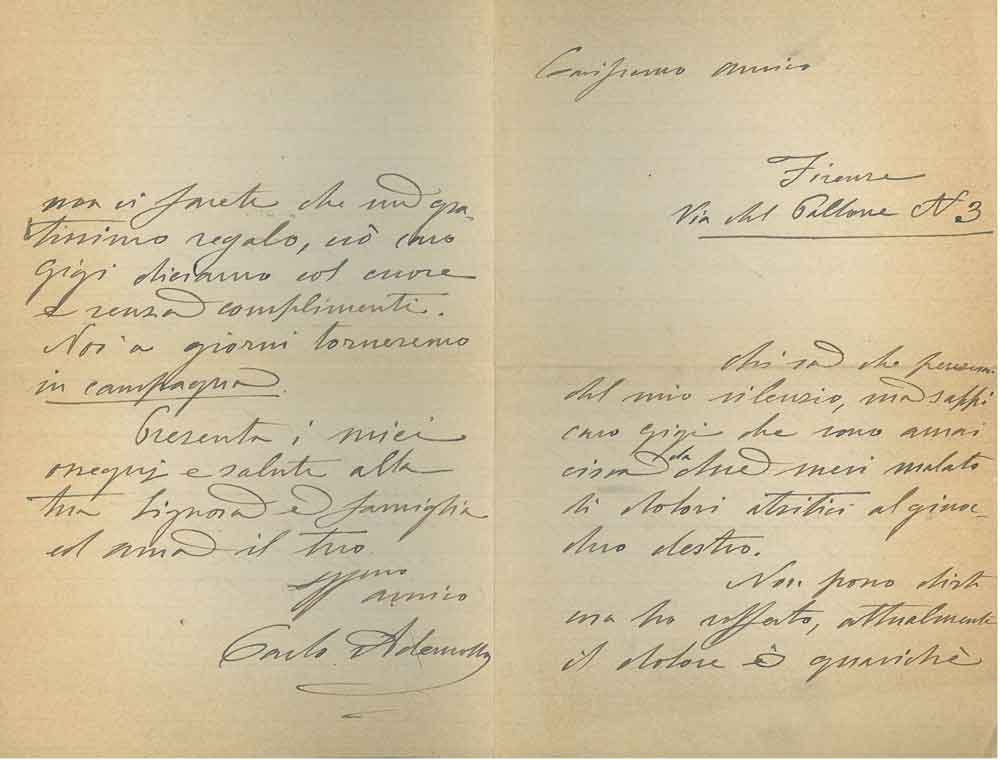 Carissimo amico
Firenze
Via del Pallone N 3
chi sa che penserai
del mio silenzio, ma sappi
caro gigi che sono omai
circa da due mesi malato
di dolori atritici al ginoc-
chio destro.
Non posso dirti
cosa ho sofferto, attualmente
il dolore è quasichè
non ci farete che un gra-
tissimo regalo, ciò caro
gigi diciamo col cuore
e senza complimenti.
Noi a giorni torneremo
in campagna.
Presenta i miei
ossequj e saluti alla
tua Signora e famiglia
ed ama il tuo
amico
Carlo Ademollo